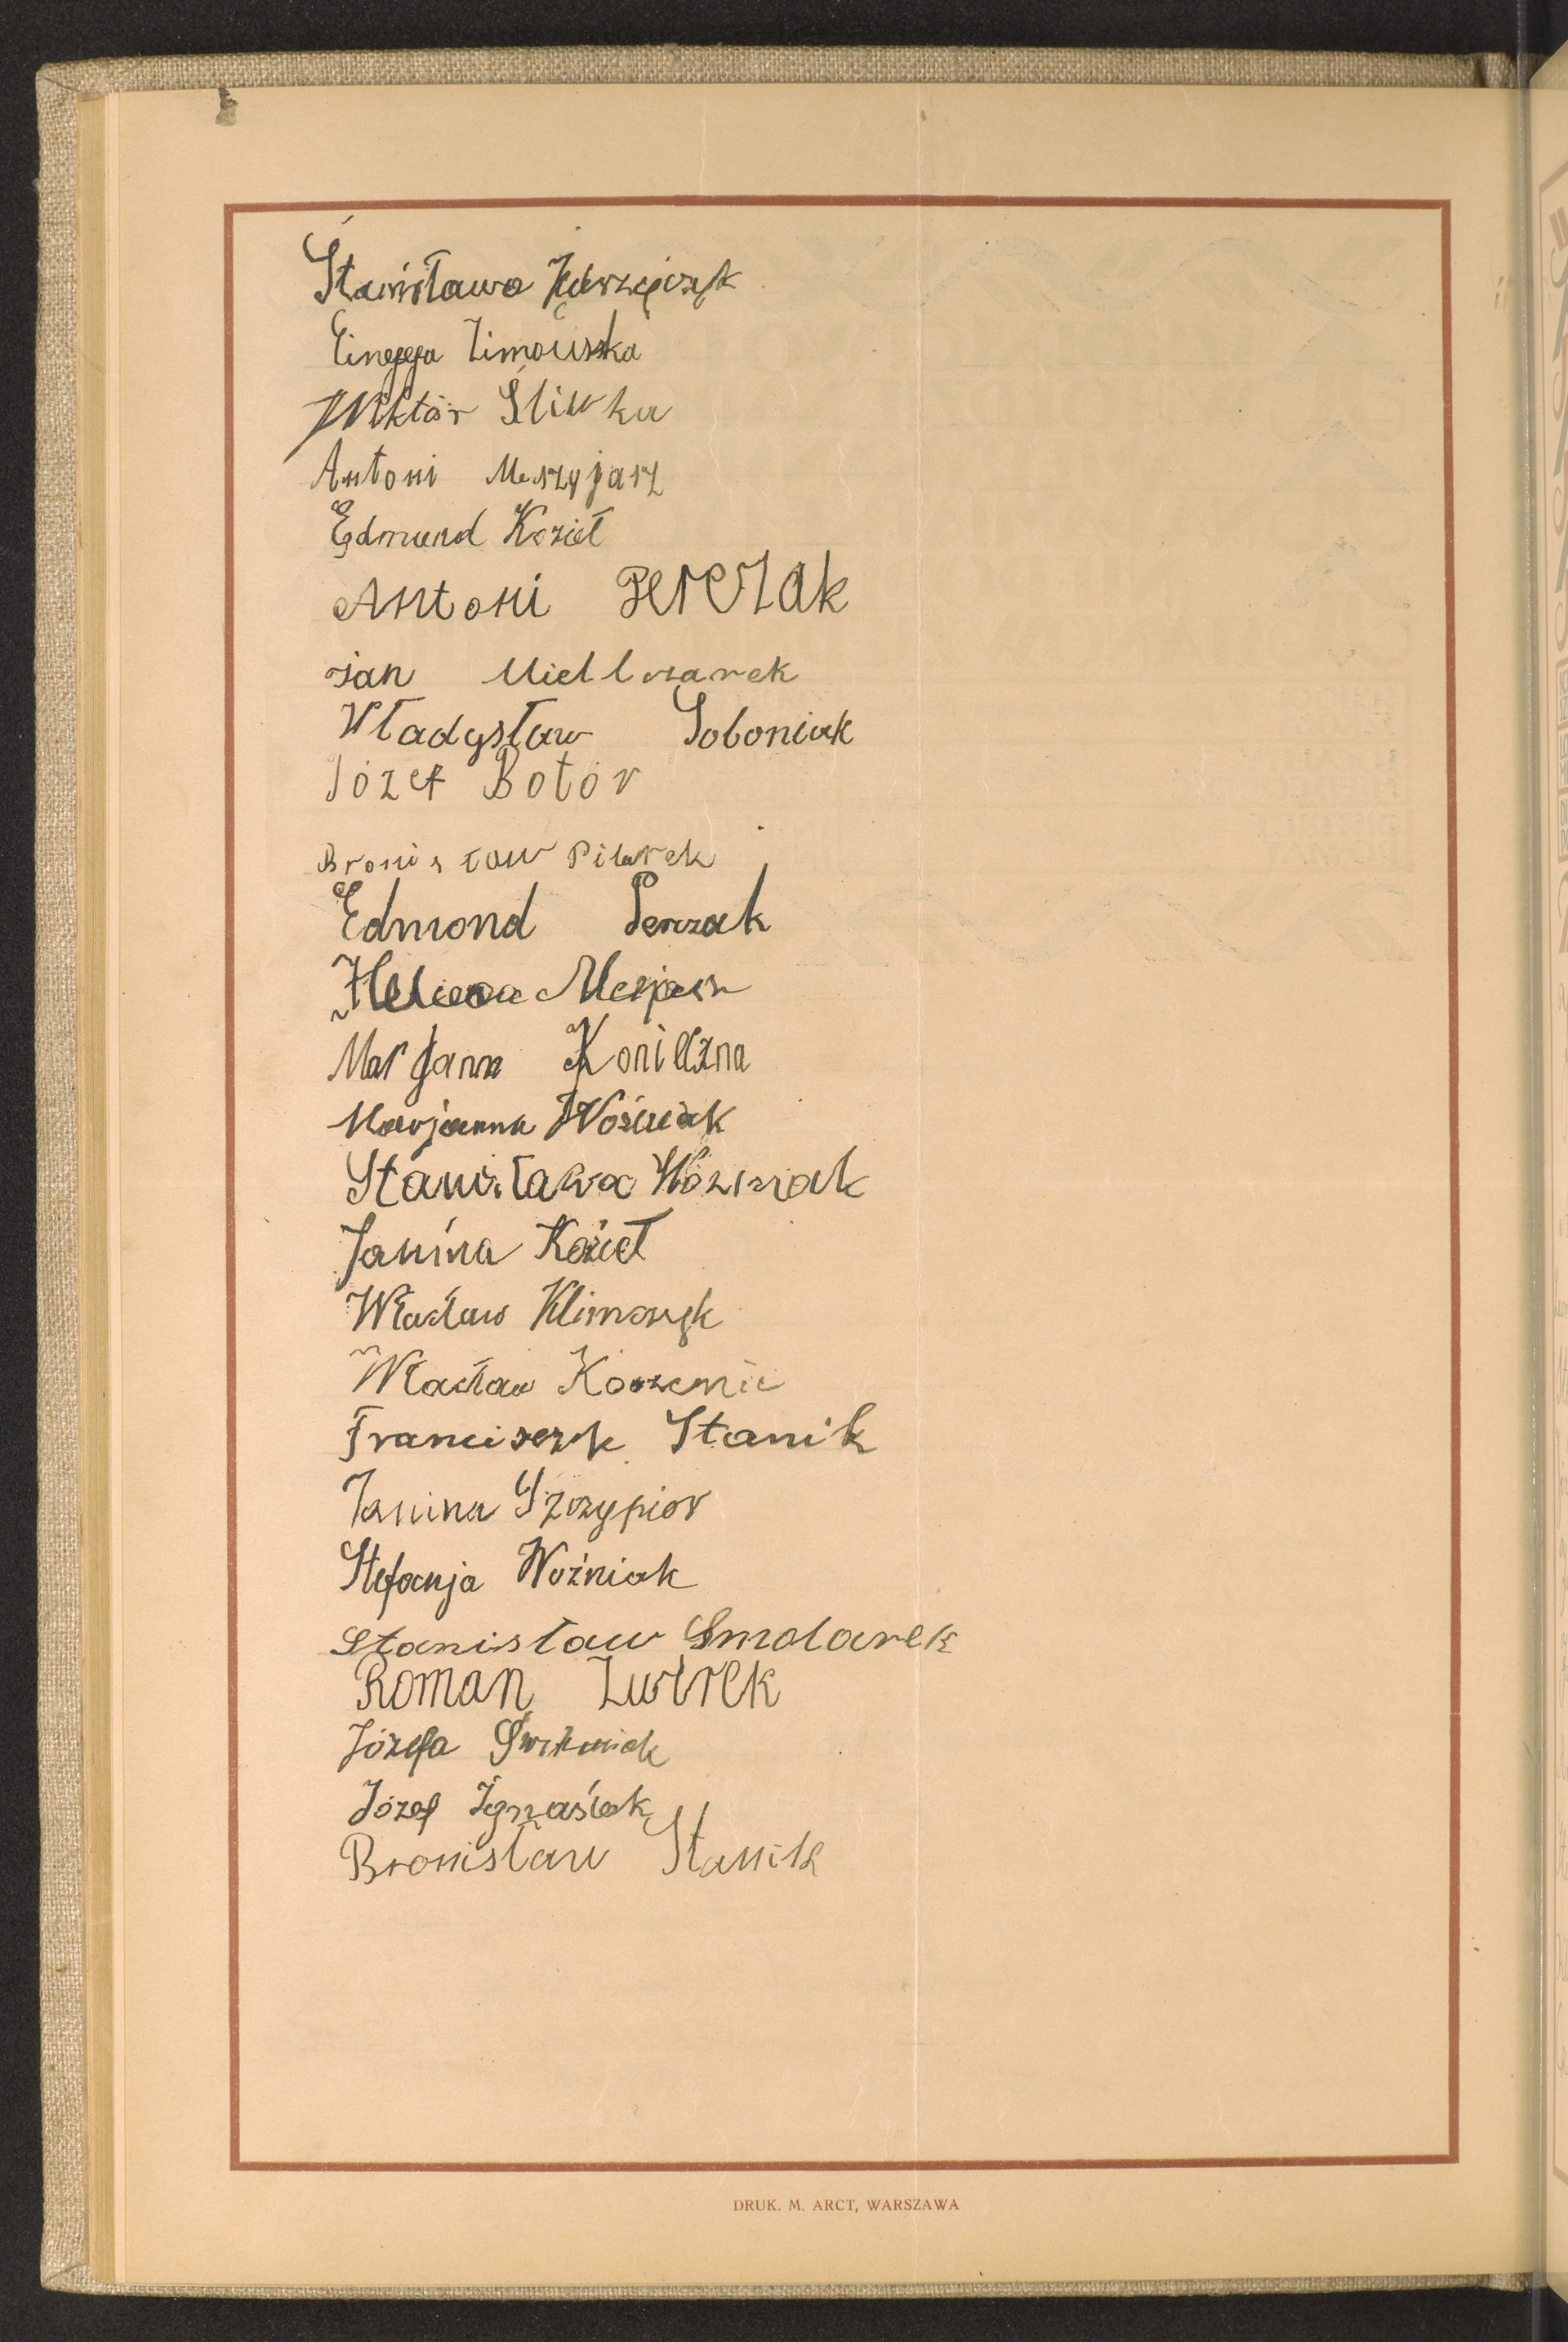 Stanisława Jędrzejczyk
Zimowska
Wiktór Śliwka
Antoni Meszyjasz
Edmund Kozieł
Antoni Perczak
Jan
Władysław Soboniak
Józef Botór
Bronisław Pilarek
Edmond Perczak
Helena Mesjasz
Marjanna Konieczna
Marjanna Woźniak
Stanisława Woźniak
Janina Kozieł
Wtacław Klimczyk
Wtacław
Franciszek Stanik
Janina Szczypior
Stefanja Woźniak
Stanisław Smolarek
Roman Żwirek
Józefa
Józef Ignasiak
Bronisław Stanik
DRUK. M. ARCT, WARSZAWA